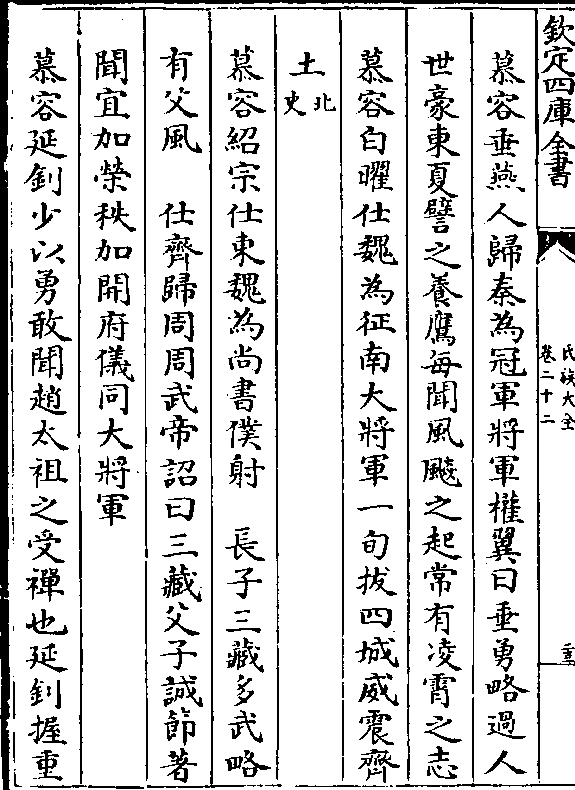 欽定四庫全書
氏族大全
卷二十二
慕容垂燕人歸秦為冠軍將軍權翼曰垂勇略過人
世豪東夏譬之養鷹每聞風飈之起常有凌霄之志
慕容白曜仕魏為征南大將軍一旬拔四城威震齊
土北史
慕容紹宗仕東魏為尚書僕射　長子三藏多武略
有父風　仕齊歸周周武帝詔曰三藏父子誠節著
聞宜加榮秩加開府儀同大將軍
慕容延釗少以勇敢聞趙太祖之受禪也延釗握重